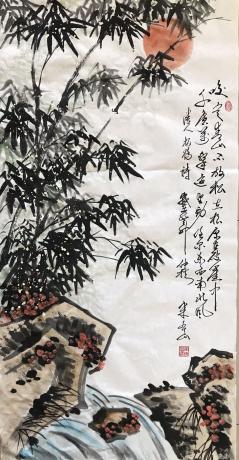 咬定青山不放松立根原在破岩中
千磨万击还坚劲任尔东西南北风
清人板桥诗